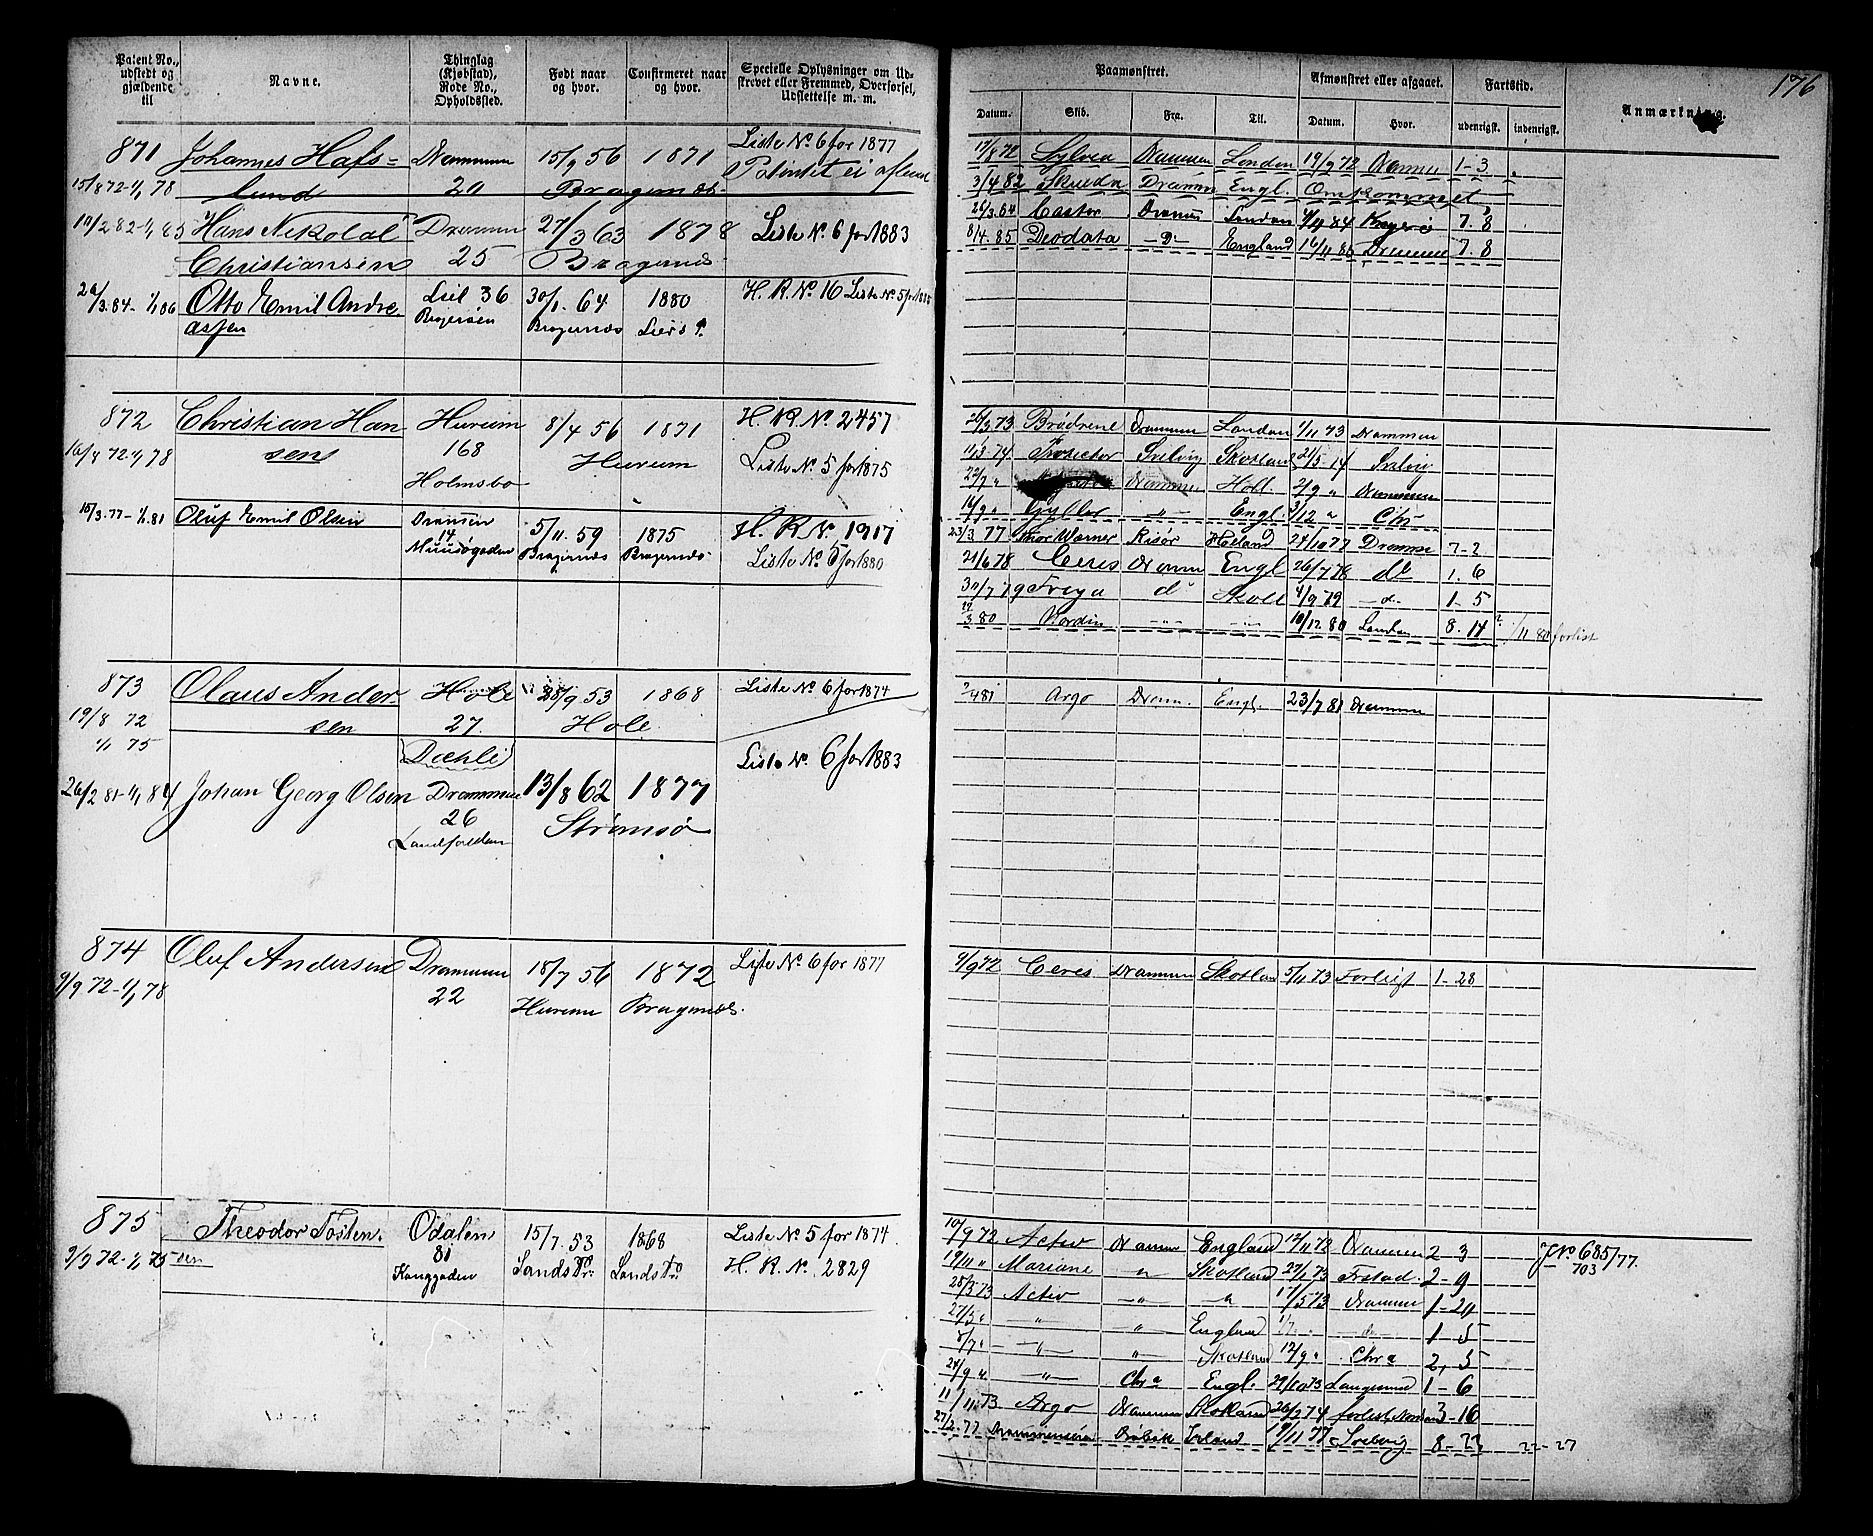 176
Patent No., udstedt og gjældende til
Navne.
Thinglag (Kjøbstad), Rode No., Opholdssted.
Født naar og hvor.
Confirmeret naar og hvor.
Specielle Oplysninger om Udskrevet eller Fremmed, Overførsel, Udslettelse m. m.
Paamønstret.
Afmønstret eller afgaaet.
Fartstid.
Anmærkning.
Datum. Skib. Fra. Til. Datum. Hvor. udenrigsk. indenrigsk.
871 Johannes Hafs- Drammen 15/9 56 1871 Liste No 6 for 1877
15/8 72-1/1 78 lund 20 Bragernæs Patentet ei aflev
10/2 82-1/1 85 Hans Nikolai Drammen 27/3 63 1878 Liste No 6 for 1883
Christiansen 25 Bragernæs
20/3.84-1/1 86 Otto Emil Andre Lieil 36 30/1.64 1880 H. R. No 16 Liste No 5 for
assen Bragernæs Liers
17/8 72 Sylvia Drammen London 19/9 72 Drammen 1-3
3/4 82 Skulda Dramm Engl. Omkommet
26/3.84 Castor Dramm London 4/11 84 Kragerø 7.8
8/4.85 Deodata -D- England 16/11 85 Drammen 7.8
872 Christian Han Hurum 8/4 56 1871 H. R. No 2457
16/8 72-1/1 78 sen 168 Hurum Liste No 5 for 1875
Holmsbo
15/3.77-1/1.81 Oluf Emil Olsen Drammen 5/11.59 1875 H. R. No 1917
14 Bragernæs Bragernæs Liste No 5 for 1880
20/3 73 Brødrene Drammen London 1/11 73 Drammen
11/3 74 Svelvig Skotland 21/5 74 Svelvig
22/7 " Drammen Holl. 2/9 " Drammen
14/9 " Gyller " Engl. 3/12 " Chr
23/3 77 Thor Warner Risør Holland 24/10 77 Dramme 7-2
21/6 78 Ceres Dramm Engl 26/7 78 do 1.6
30/7 79 Freya d Skotl 4/9 79 -d- 1-5
22/3 80 Nordin -"- -"- 10/12 80 London 8.14 /11 80 forlist
873 Olaus Ander- Hole 28/9 53 1868 Liste No 6 for 1874
19/8 72 sen 27. Hole
1/1 75 Dæhli
26/2 81-1/1 84 Johan Georg Olsen Drammen 13/8 62 1877 Liste No. 6 for 1883
26 Strømsø
Landfalden
2/4 81 Argo Dram. Engl. 23/7 81 Drammen
874 Oluf Andersen Drammen 18/7 56 1872 Liste No 6 for 1877
9/9 72-1/1 78 22 Hurum Bragernæs.
9/9 72 Ceres Drammen Skotlan 5/11 73 Forliist 1-28
875 Theodor Tosten- Odalen 15/7.53 1868 Liste No 5 for 1874
9/9 72-1/1 75 sen 81 Sands Pr: Sands Pr H. R. No. 2829
Konggaden
10/9 72 Activ Drammen England 12/11 72 Drammen 2 3 J No 685/77.
703
19/11 " Mariane " Skotland 27/1 73 Frstad. 2-9
28/3 73 Activ -"- -"- 17/5 73 Drammen 1-20
27/5 " -"- " England -do- 1-5
8/7 " -"- " Skotland 12/9 " Chr a 2,5
24/9 " -"- Chr a Engl. 29/10 73 Langesund 1-6
11/11 73 Argo Drammen Skotland 26/2 74 forlist 3-16
27/2.77 Drammensera Drøbak Irland 19/11 77 Svelvig 8-22 22-27